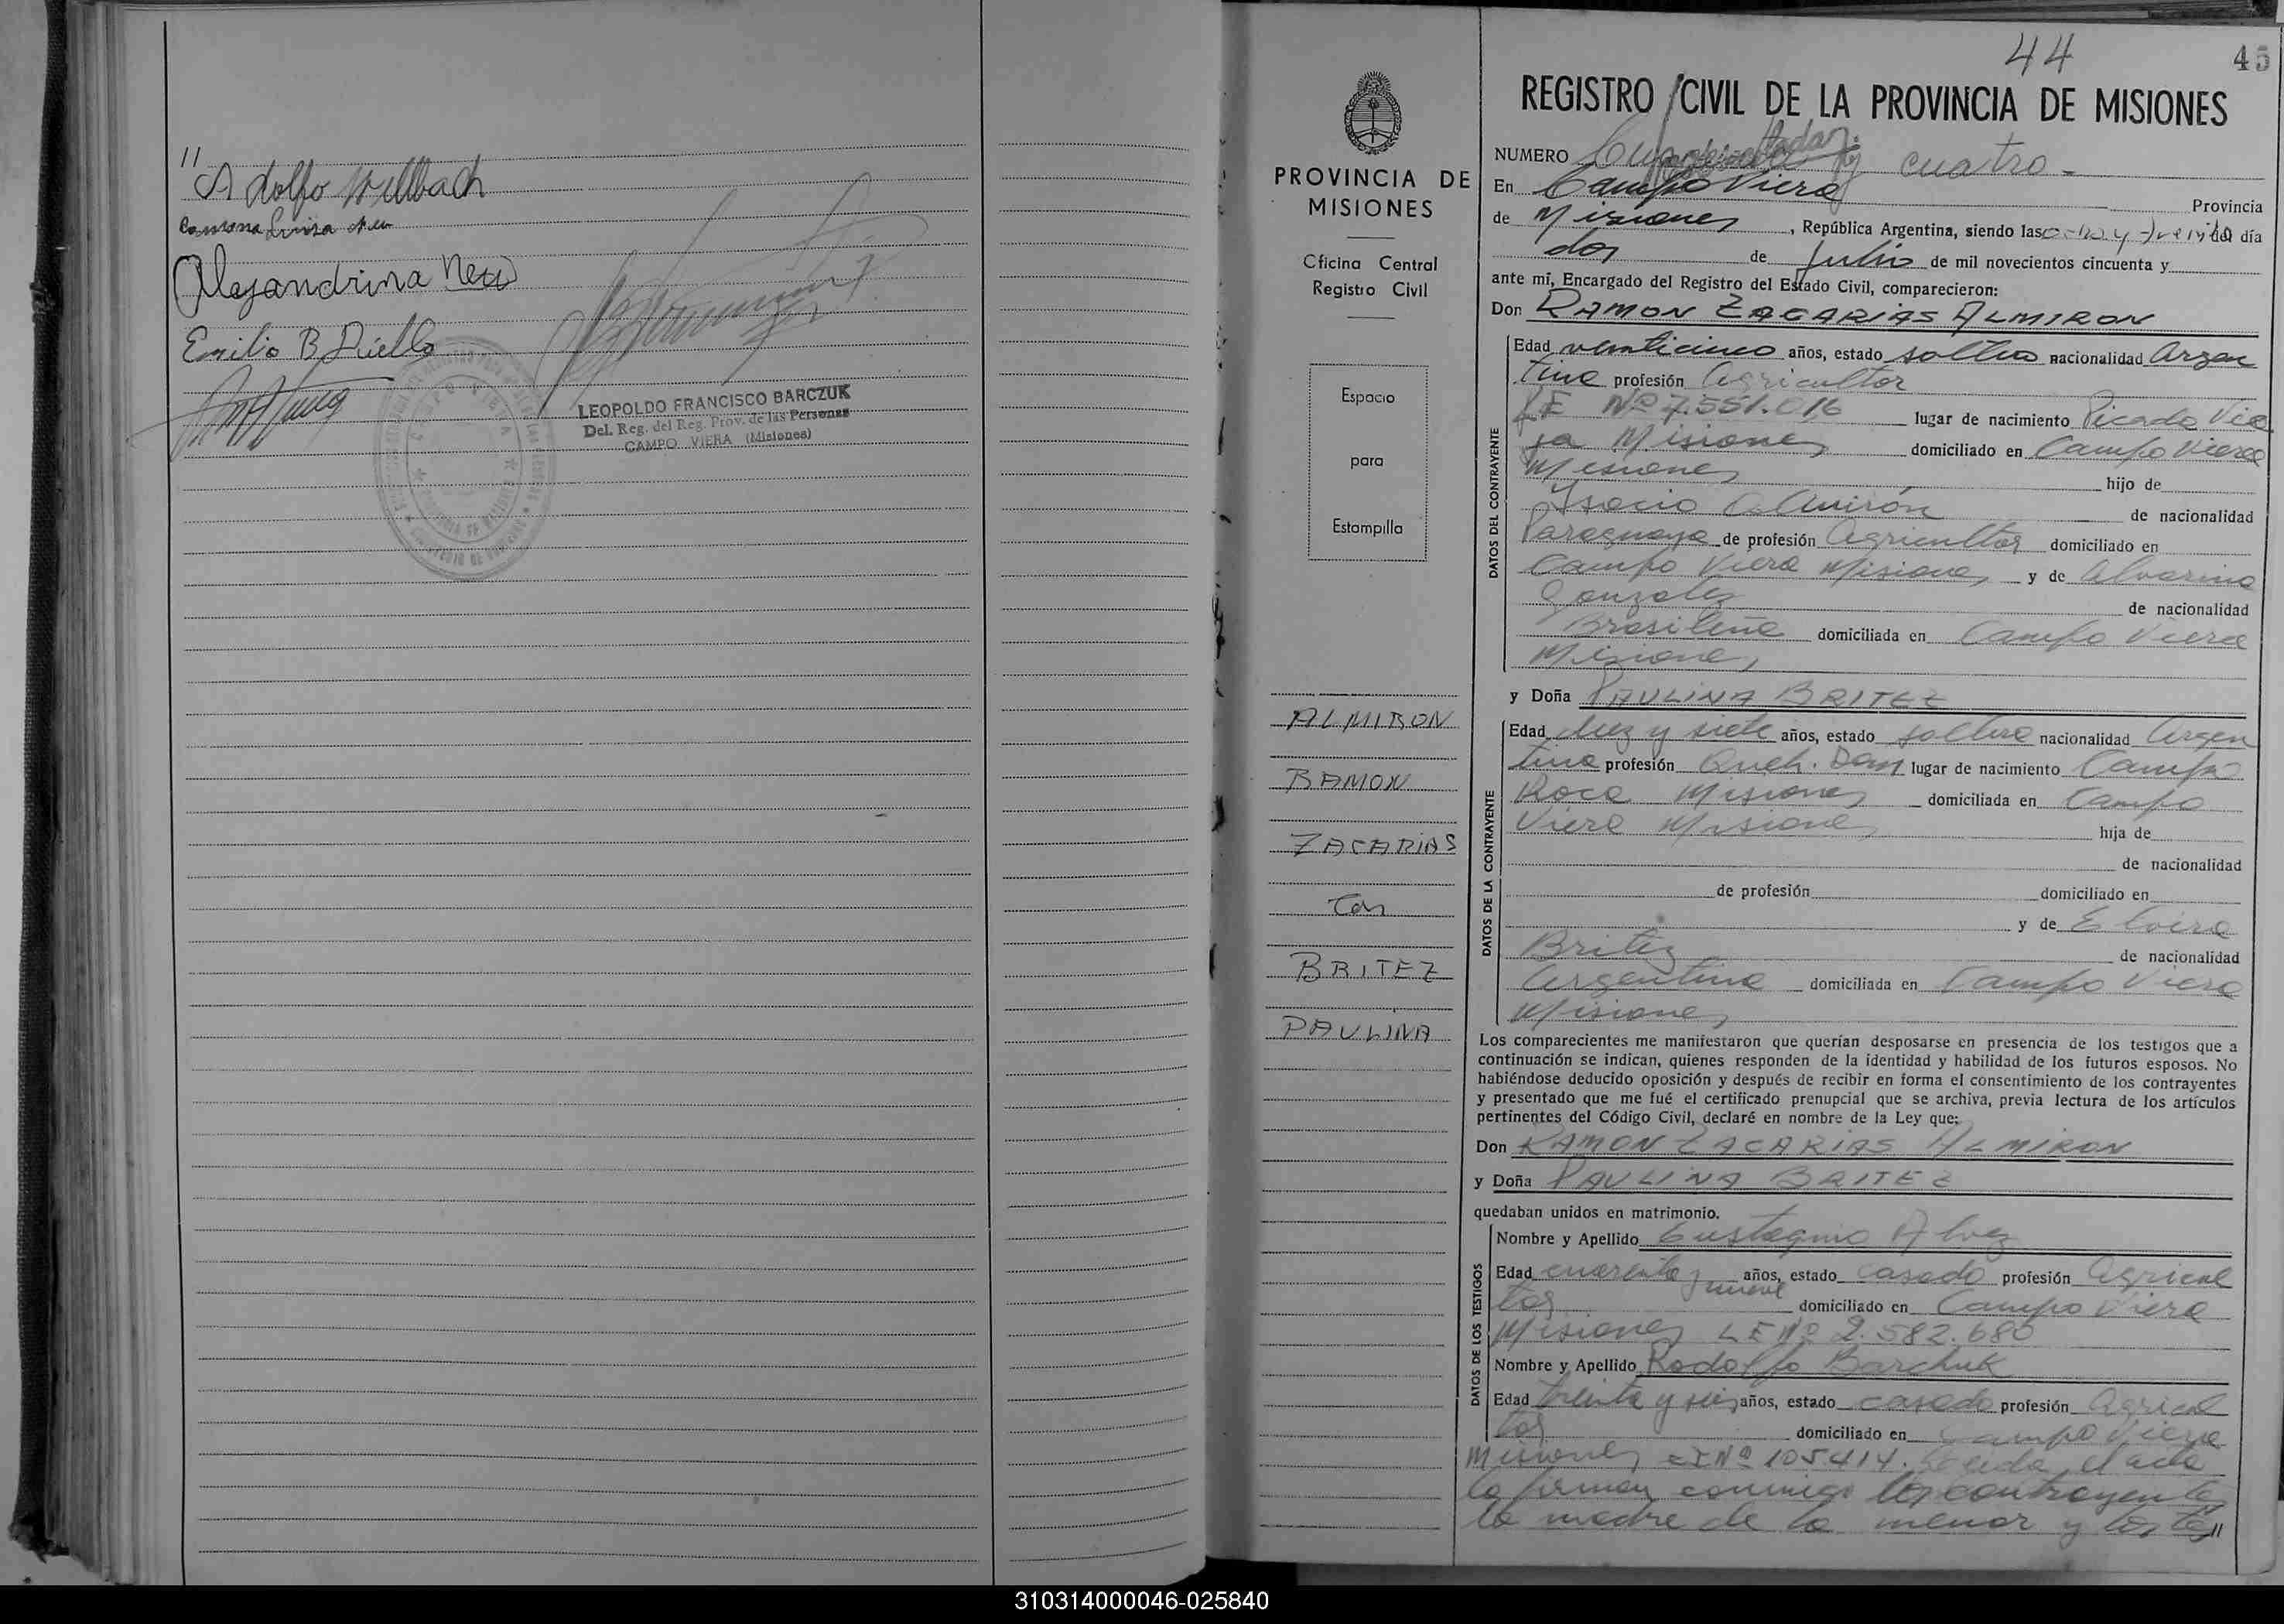 11
Adolfo Willbach
Ramona Luisa Neu
Alejandrina Neu
Emilio B Duello
LEOPOLDO FRANCISCO BARCZUK
Del. Reg. del Reg. Prov. de las Personas
CAMPO VIERA (Misiones)
44
45
PROVINCIA DE
MISIONES
Oficina Central
Registro Civil
Espacio
para
Estampilla
ALMIRON
RAMON
ZACARIAS
Con
BRITEZ
PAULINA
REGISTRO CIVIL DE LA PROVINCIA DE MISIONES
NUMERO cuatro.-
En Campo Viera Provincia
de Misiones, República Argentina, siendo las once y treinta del día
dos de Julio de mil novecientos cincuenta y
ante mí, Encargado del Registro del Estado Civil, comparecieron:
Don RAMON ZACARIAS ALMIRON
DATOS DEL CONTRAYENTE
Edad venticinco años, estado soltero nacionalidad Argen
tina profesión Agricultor
LE Nº 7.551.016 lugar de nacimiento Picada Vie
ja Misiones domiciliado en Campo Viera
Misiones hijo de
Almirón de nacionalidad
Paraguaya de profesión Agricultor domiciliado en
Campo Viera Misiones y de Alvarina
Gonzalez de nacionalidad
Brasileña domiciliada en Campo Viera
Misiones
y Doña PAULINA BRITEZ
DATOS DE LA CONTRAYENTE
Edad diez y siete años, estado soltera nacionalidad Argen
tina profesión Queh. Dom lugar de nacimiento Campo
Roca Misiones domiciliada en Campo
Viera Misiones hija de
de nacionalidad
de profesión domiciliado en
y de Elvira
Britez de nacionalidad
Argentina domiciliada en Campo Viera
Misiones
Los comparecientes me manifestaron que querían desposarse en presencia de los testigos que a
continuación se indican, quienes responden de la identidad y habilidad de los futuros esposos. No
habiéndose deducido oposición y después de recibir en forma el consentimiento de los contrayentes
y presentado que me fué el certificado prenupcial que se archiva, previa lectura de los artículos
pertinentes del Código Civil, declaré en nombre de la Ley que:
Don RAMON ZACARIAS ALMIRON
y Doña PAULINA BRITEZ
quedaban unidos en matrimonio.
DATOS DE LOS TESTIGOS
Nombre y Apellido Eustaquio Alvez
Edad cuarenta y nueve años, estado casado profesión Agricul
tor domiciliado en Campo Viera
Misiones LE Nº 2.582.680
Nombre y Apellido Rodolfo Barchuk
Edad treinta y seis años, estado casado profesión Agricul
tor domiciliado en Campo Viera
Misiones CI Nº 105.414. Leida el acta
la firman conmigo los contrayente
la madre de la menor y los tes//
310314000046-025840